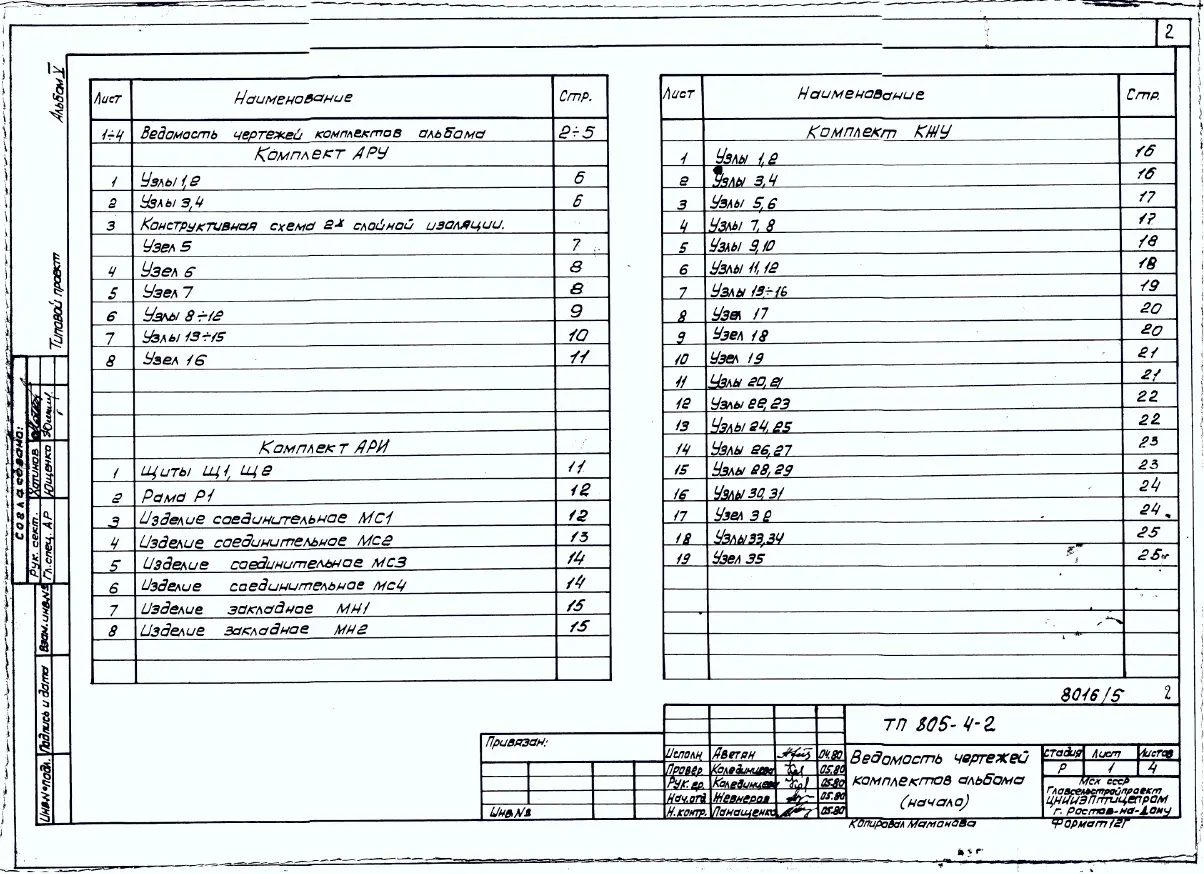 2
Альбом V
Типовой проект
Лист Наименование Стр.
1÷4 Ведомость чертежей комплектов альбома 2÷5
Комплект АРУ
1 Узлы 1,2 6
2 Узлы 3,4 6
3 Конструктивная схема 2х слойной изоляции.
Узел 5 7
4 Узел 6 8
5 Узел 7 8
6 Узлы 8÷12 9
7 Узлы 13÷15 10
8 Узел 16 11
Комплект АРИ
1 Щиты Щ1, Щ2 11
2 Рама Р1 12
3 Изделие соединительное МС1 12
4 Изделие соединительное МС2 13
5 Изделие соединительное МС3 14
6 Изделие соединительное МС4 14
7 Изделие закладное МН1 15
8 Изделие закладное МН2 15
Лист Наименование Стр.
Комплект КЖУ
1 Узлы 1,2 16
2 Узлы 3,4 16
3 Узлы 5,6 17
4 Узлы 7, 8 17
5 Узлы 9,10 18
6 Узлы 11,12 18
7 Узлы 13÷16 19
8 Узел 17 20
9 Узел 18 20
10 Узел 19 21
11 Узлы 20,21 21
12 Узлы 22,23 22
13 Узлы 24,25 22
14 Узлы 26,27 23
15 Узлы 28,29 23
16 Узлы 30,31 24
17 Узел 32 24
18 Узлы 33,34 25
19 Узел 35 25
Согласовано:
Рук. сект. Хатинов
Гл.спец. АР Ющенко
Взам.инв.№
Подпись и дата
Инв.№подл.
8016/5 2
Привязан:
Инв.№
ТП 805-4-2
Исполн. Аветян 04.80
Провер. Колединцева 05.80
Рук.гр. Колединцева 05.80
Нач.отд. Жевнеров 05.80
Н.контр. Панащенко 05.80
Ведомость чертежей
комплектов альбома
(начало)
Стадия Лист Листов
Р 1 4
МСХ СССР
Главсельстройпроект
ЦНИИЭПптицепром
г. Ростов-на-Дону
Копировал Маманова
Формат 12Г